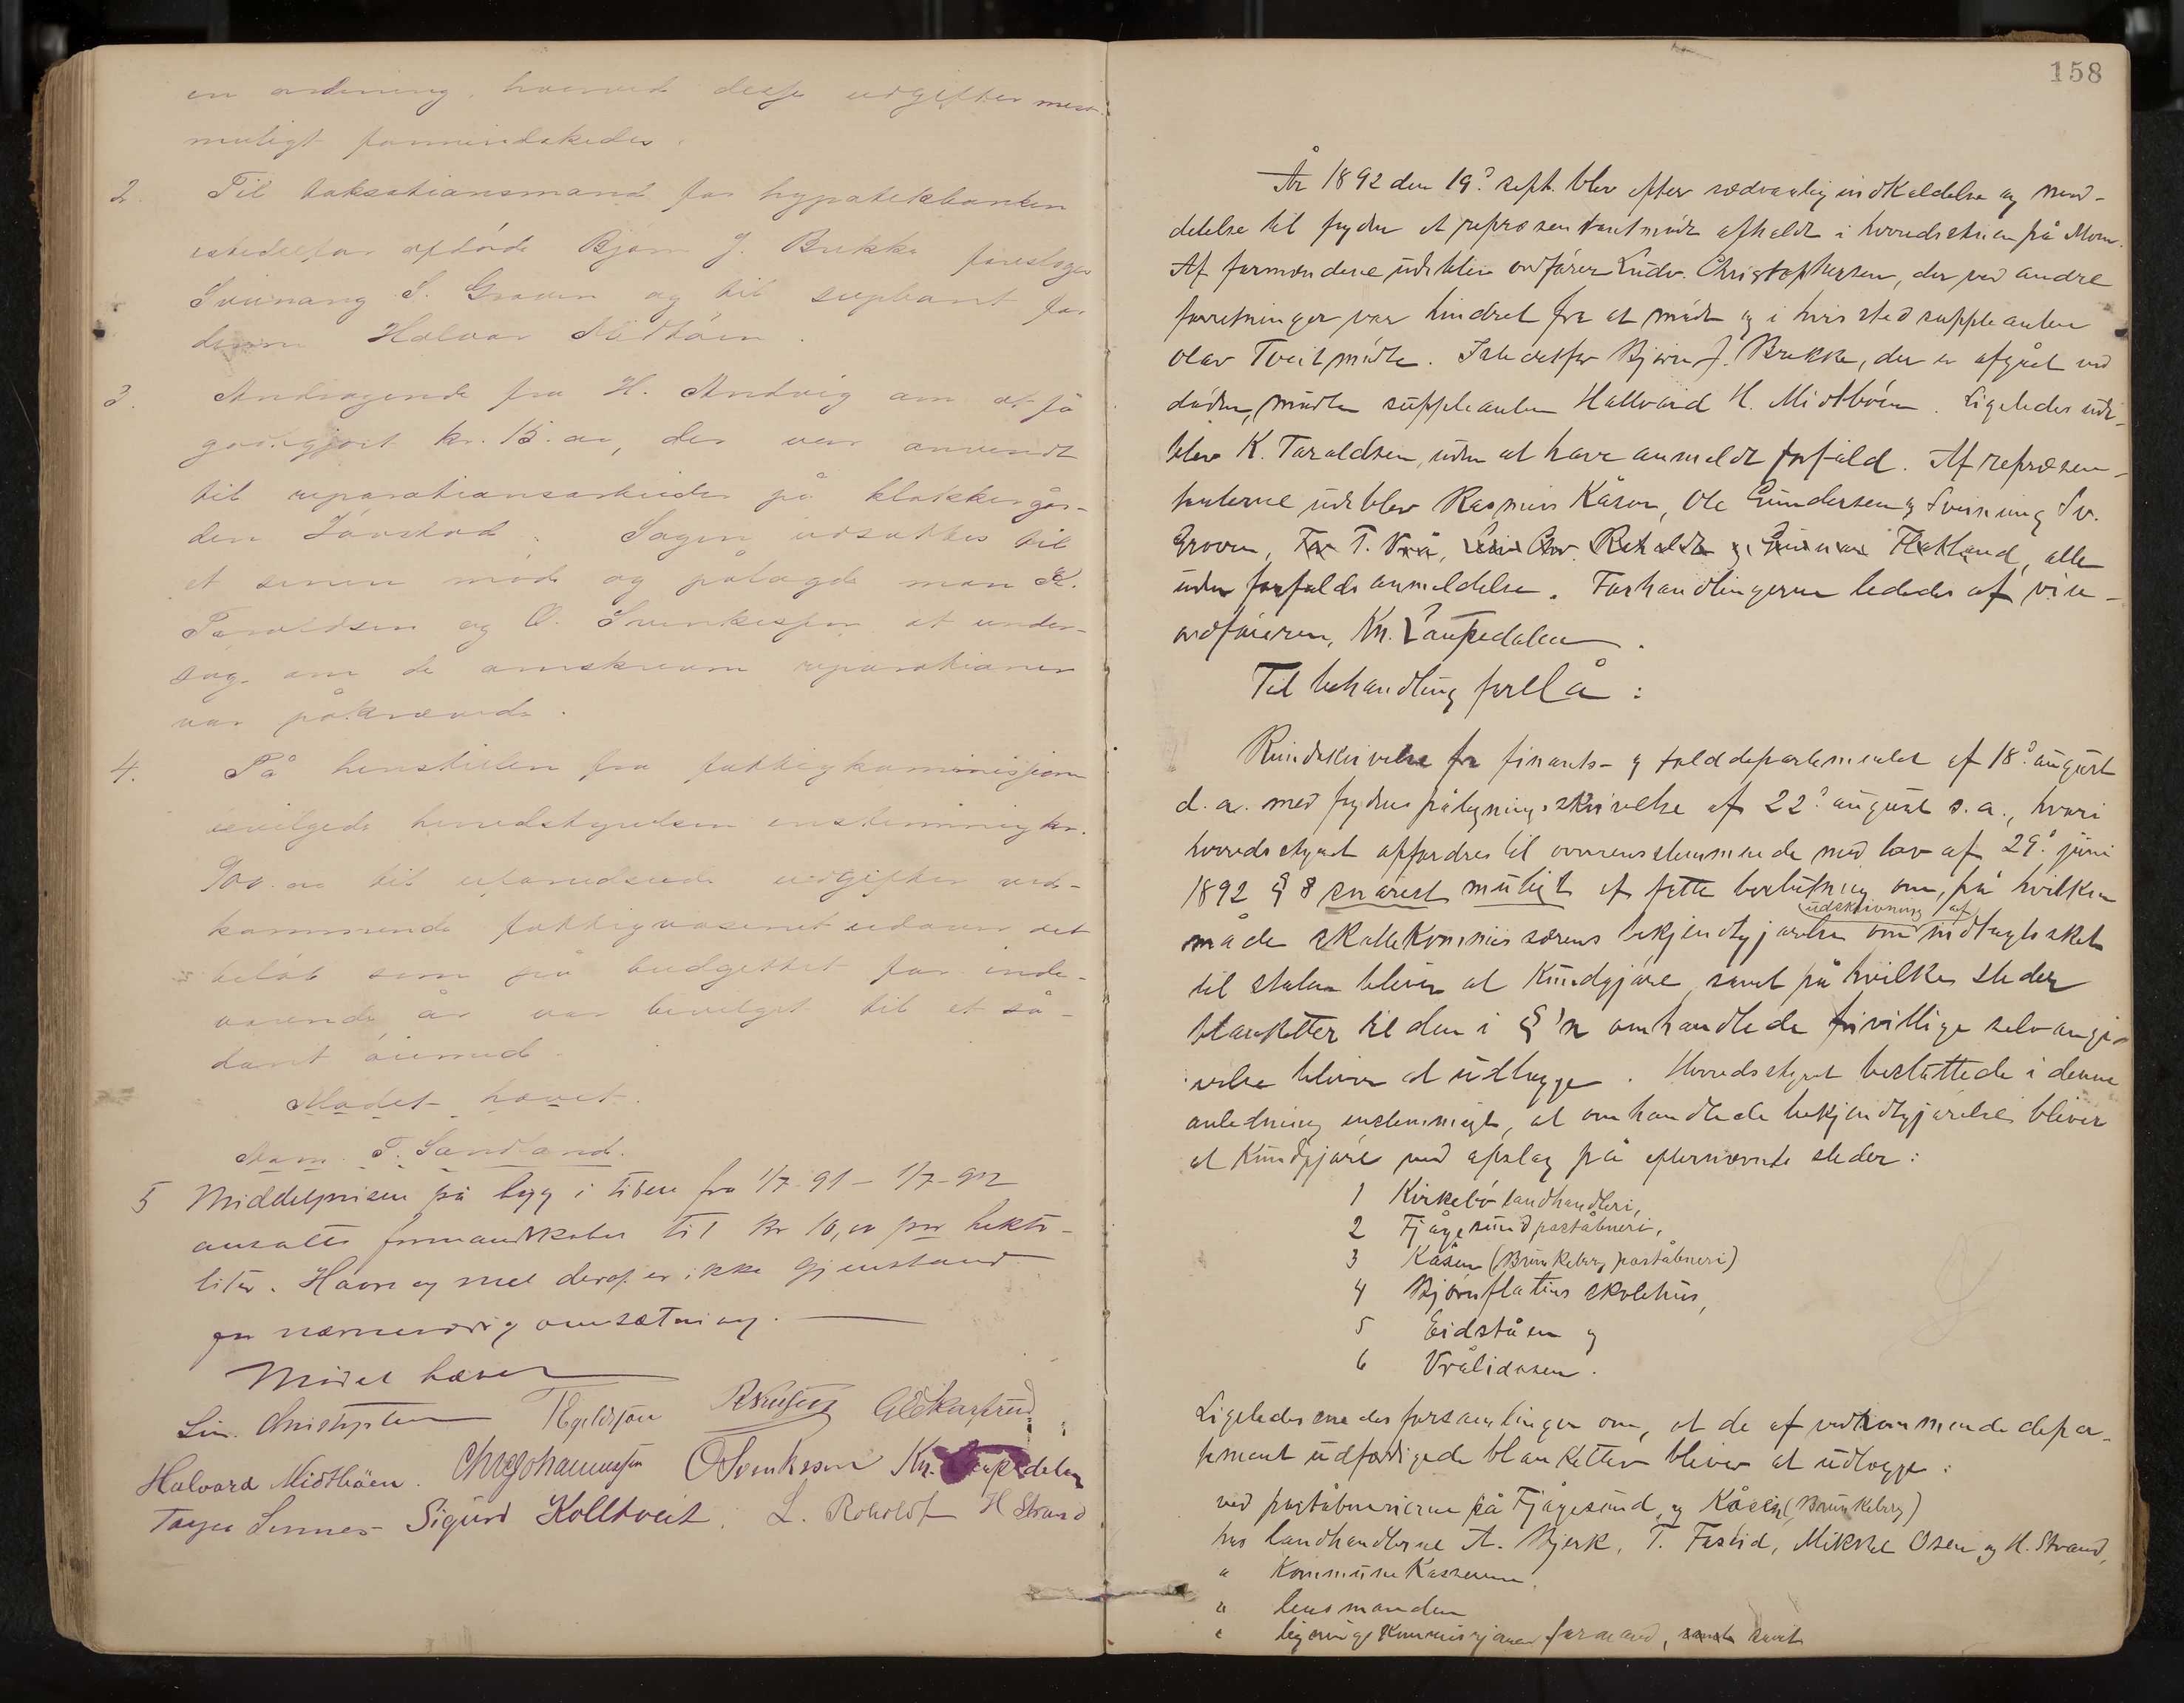 en ordning, hvorved disse udgifter mest
muligt formindskedes.
2. Til taksationsmand for hypotekbanken
istedetfor afdøde Bjørn J. Brekke foresloges
Sveinung S. Groven og til suppleant for
denne Halvor Midtbøen.
3. Andragende fra H. Andvig om at få
godtgjort kr. 15.00, der var anvendt
til reparationsarbeider på klokkergår-
den Løvstad. Sagen udsattes til
et senere møde og pålagde man K.
Taraldsen og O. Svenkesen at under-
søge om de omskrevne reparationer
var påkrævede.
4. På henstillen fra fattigkommissionen
bevilgede herredsstyrelsen enstemmig kr.
900.00 til uforudseede udgifter ved-
kommende fattigvæsenet udover det
beløb som på budgettet for inde-
værende år var bevilget til et så-
dant øiemed.
Mødet hævet.
T. Sandland.
5 Middelprisen på byg i tiden fra 1/7-91 - 1/7-92
ansattes formandskabet til kr 10,00 pr hekto-
liter. Havre og mel deraf er ikke gjenstand
for nævneværdig omsætning.
Mødet hævet
Lud. Christophersen
Halvard Midtbøen. Chr Johannessen O Svenkesen Kn. Laupedalen
Sigurd Kolltveit. L. Roholdt H Strand
158
År 1892 den 19de sept. blev efter sædvanlig indkaldelse og med-
delelse til fogden et repræsentantmøde afholdt i herredsstuen på Moen.
Af formændene udeblev ordfører Ludv. Christophersen, der ved andre
forretninger var hindret fra at møde og i hvis sted suppleanten
Olav Tveit mødte. Istedetfor Bjørn J. Brekke, der er afgået ved
døden, mødte suppleanten Hallvard H. Midtbøen. Ligeledes ude-
blev K. Taraldsen, uden at have anmeldt forfald. Af repræsen-
tanterne udeblev Rasmus Kåsen, Ole Gundersen og Sveinung Sv.
Groven, T. Vrå, Roholdt og Gunnar Flatland, alle
uden forfaldsanmeldelse. Forhandlingerne lededes af vice-
ordføreren, Kn. Laupedalen.
Til behandling forelå:
Rundskrivelse fra finants- og tolddepartementet af 18de august
d.a. med fogdens påtegningsskrivelse af 22de august s.a., hvori
herredsstyret opfordres til overensstemmende med lov af 29de juni
1892 § 8 snarest muligt at fatte beslutning om, på hvilken
udskrivning af
måde skattekommissærens bekjendtgjørelse om indtægtsskat
til staten bliver at kundgjøre, samt på hvilke steder
blanketter til den i §'n omhandlede frivillige selvangi-
velse bliver at udlægge. Herredsstyret besluttede i denne
anledning enstemmigt, at omhandlede bekjendtgjørelse bliver
at kundgjøre ved opslag på efternævnte steder:
1 Kirkebø landhandleri,
2 Fjågesund poståbneri,
3 Kåsen (Brunkeberg poståbneri)
4 Bjørnflatens skolehus,
5 Eidståen og
6 Vrålidosen.
Ligeledes enedes forsamlingen om, at de af vedkommende depar-
tement udfærdigede blanketter bliver at udlægge:
ved poståbnerierne på Fjågesund, og Kåsen (Brunkeberg)
hos landhandlerne A. Bjerk, T. Faseid, Mikkel Osen og H. Strand,
" kommunekassereren,
" lensmanden
" ligningskommissionens formand, samt